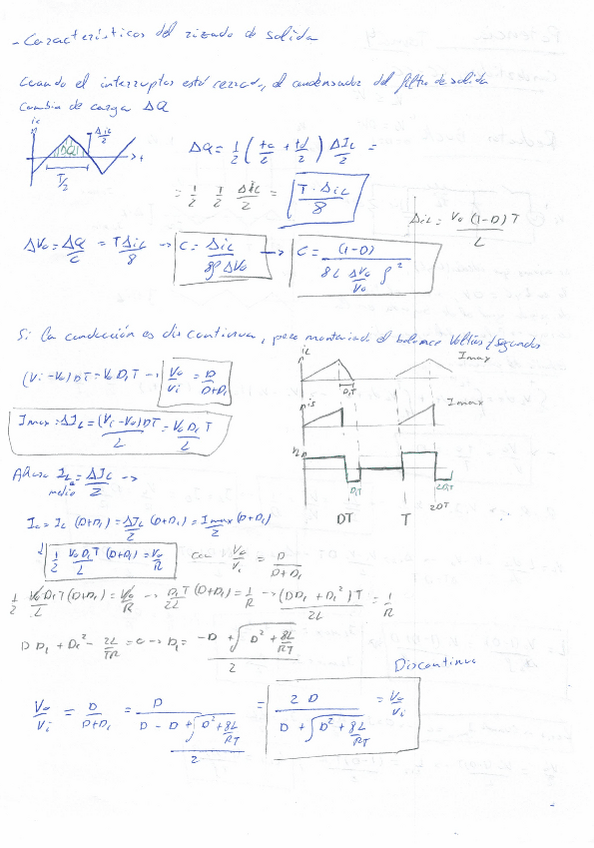 - Características del rizado de salida
Cuando el interruptor está cerrado, el condensador del filtro de salida
cambia de carga ΔQ
ic
Δic/2
ΔQ
t
T/2
ΔQ = 1/2 (tc/2 + td/2) ΔIL/2 =
= 1/2 · T/2 · ΔiL/2 = T·ΔiL/8
ΔiL = Vo (1-D) T / L
ΔVo = ΔQ/C = TΔiL/8 → C = ΔiL/(8f ΔVo) → C = (1-D)/(8L ΔVo/Vo f²)
Si la conducción es discontinua, pero manteniendo el balance Voltios/segundo
(Vi - Vo) DT = Vo D1 T → Vo/Vi = D/(D+D1)
iL
Imax
D1T
Imax = ΔIL = (Vi-Vo)DT/L = Vo D1 T/L
is
Imax
Ahora IL = ΔIL/2 →
medio
D1T
2D1T
DT
T
2DT
Io = IL (D+D1) = ΔIL/2 (D+D1) = Imax/2 (D+D1)
1/2 Vo D1 T/L (D+D1) = Vo/R con Vo/Vi = D/(D+D1)
1/2 Vo D1 T/L (D+D1) = Vo/R → D1 T/2L (D+D1) = 1/R → (DD1 + D1²) T/2L = 1/R
D D1 + D1² - 2L/TR = 0 → D1 = (-D + √(D² + 8L/RT))/2
Discontinua
Vo/Vi = D/(D+D1) = D/((D - D + √(D² + 8L/RT))/2) = 2D/(D + √(D² + 8L/RT)) = Vo/Vi